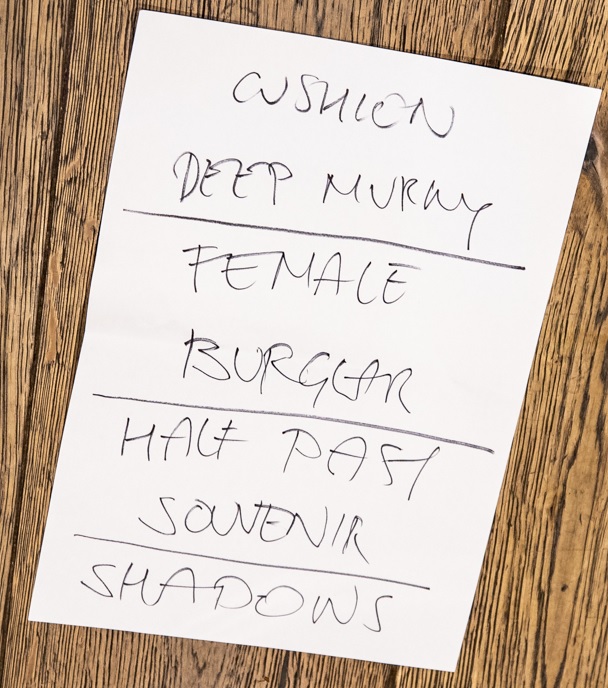 CUSHION
DEEP MURKY
FEMALE
BURGLAR
HALF PAST
SOUVENIR
SHADOWS